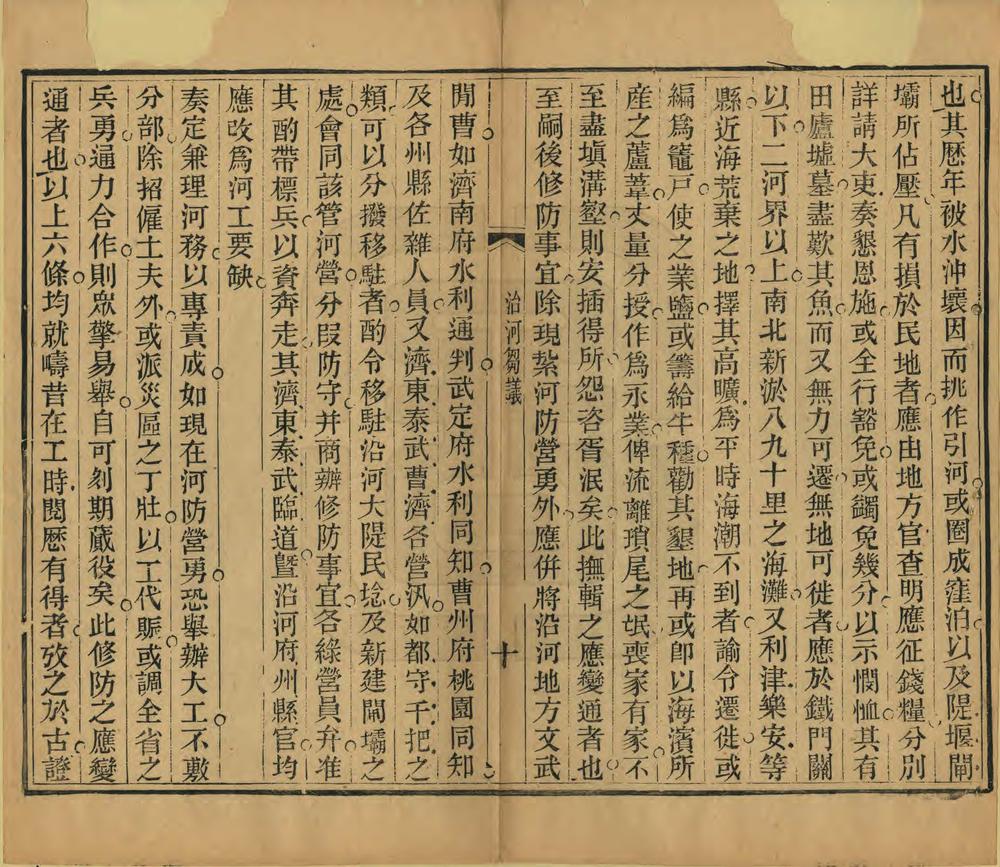 也其歷年被水沖壞因而挑作引河或圈成窪泊以及隄堰閘
壩所佔壓凡有損於民地者應由地方官查明應征錢糧分別
詳請大吏奏懇恩施或全行豁免或蠲免幾分以示憫恤其有
田廬墟墓盡歎其魚而又無力可遷無地可徙者應於鐵門關
以下二河界以上南北新淤八九十里之海灘又利津樂安等
縣近海荒棄之地擇其高曠爲平時海潮不到者諭令遷徙或
編爲竈戸使之業鹽或籌給牛種勸其墾地再或卽以海濱所
産之蘆葦丈量分授作爲永業俾流離瑣尾之氓喪家有家不
至盡塡溝壑則安插得所怨咨胥泯矣此撫輯之應變通者也
至嗣後修防事宜除現紮河防營勇外應併將沿河地方文武
治河芻議
十
閒曹如濟南府水利通判武定府水利同知曹州府桃園同知
及各州縣佐雜人員又濟東泰武曹濟各營汛如都守千把之
類可以分撥移駐者酌令移駐沿河大隄民埝及新建閘壩之
處會同該管河營分段防守并商辦修防事宜各綠營員弁准
其酌帶標兵以資奔走其濟東泰武臨道曁沿河府州縣官均
應改爲河工要缺
奏定兼理河務以專責成如現在河防營勇恐舉辦大工不敷
分部除招僱土夫外或派災區之丁壯以工代賑或調全省之
兵勇通力合作則眾擎易舉自可刻期蕆役矣此修防之應變
通者也以上六條均就疇昔在工時閱歷有得者攷之於古證